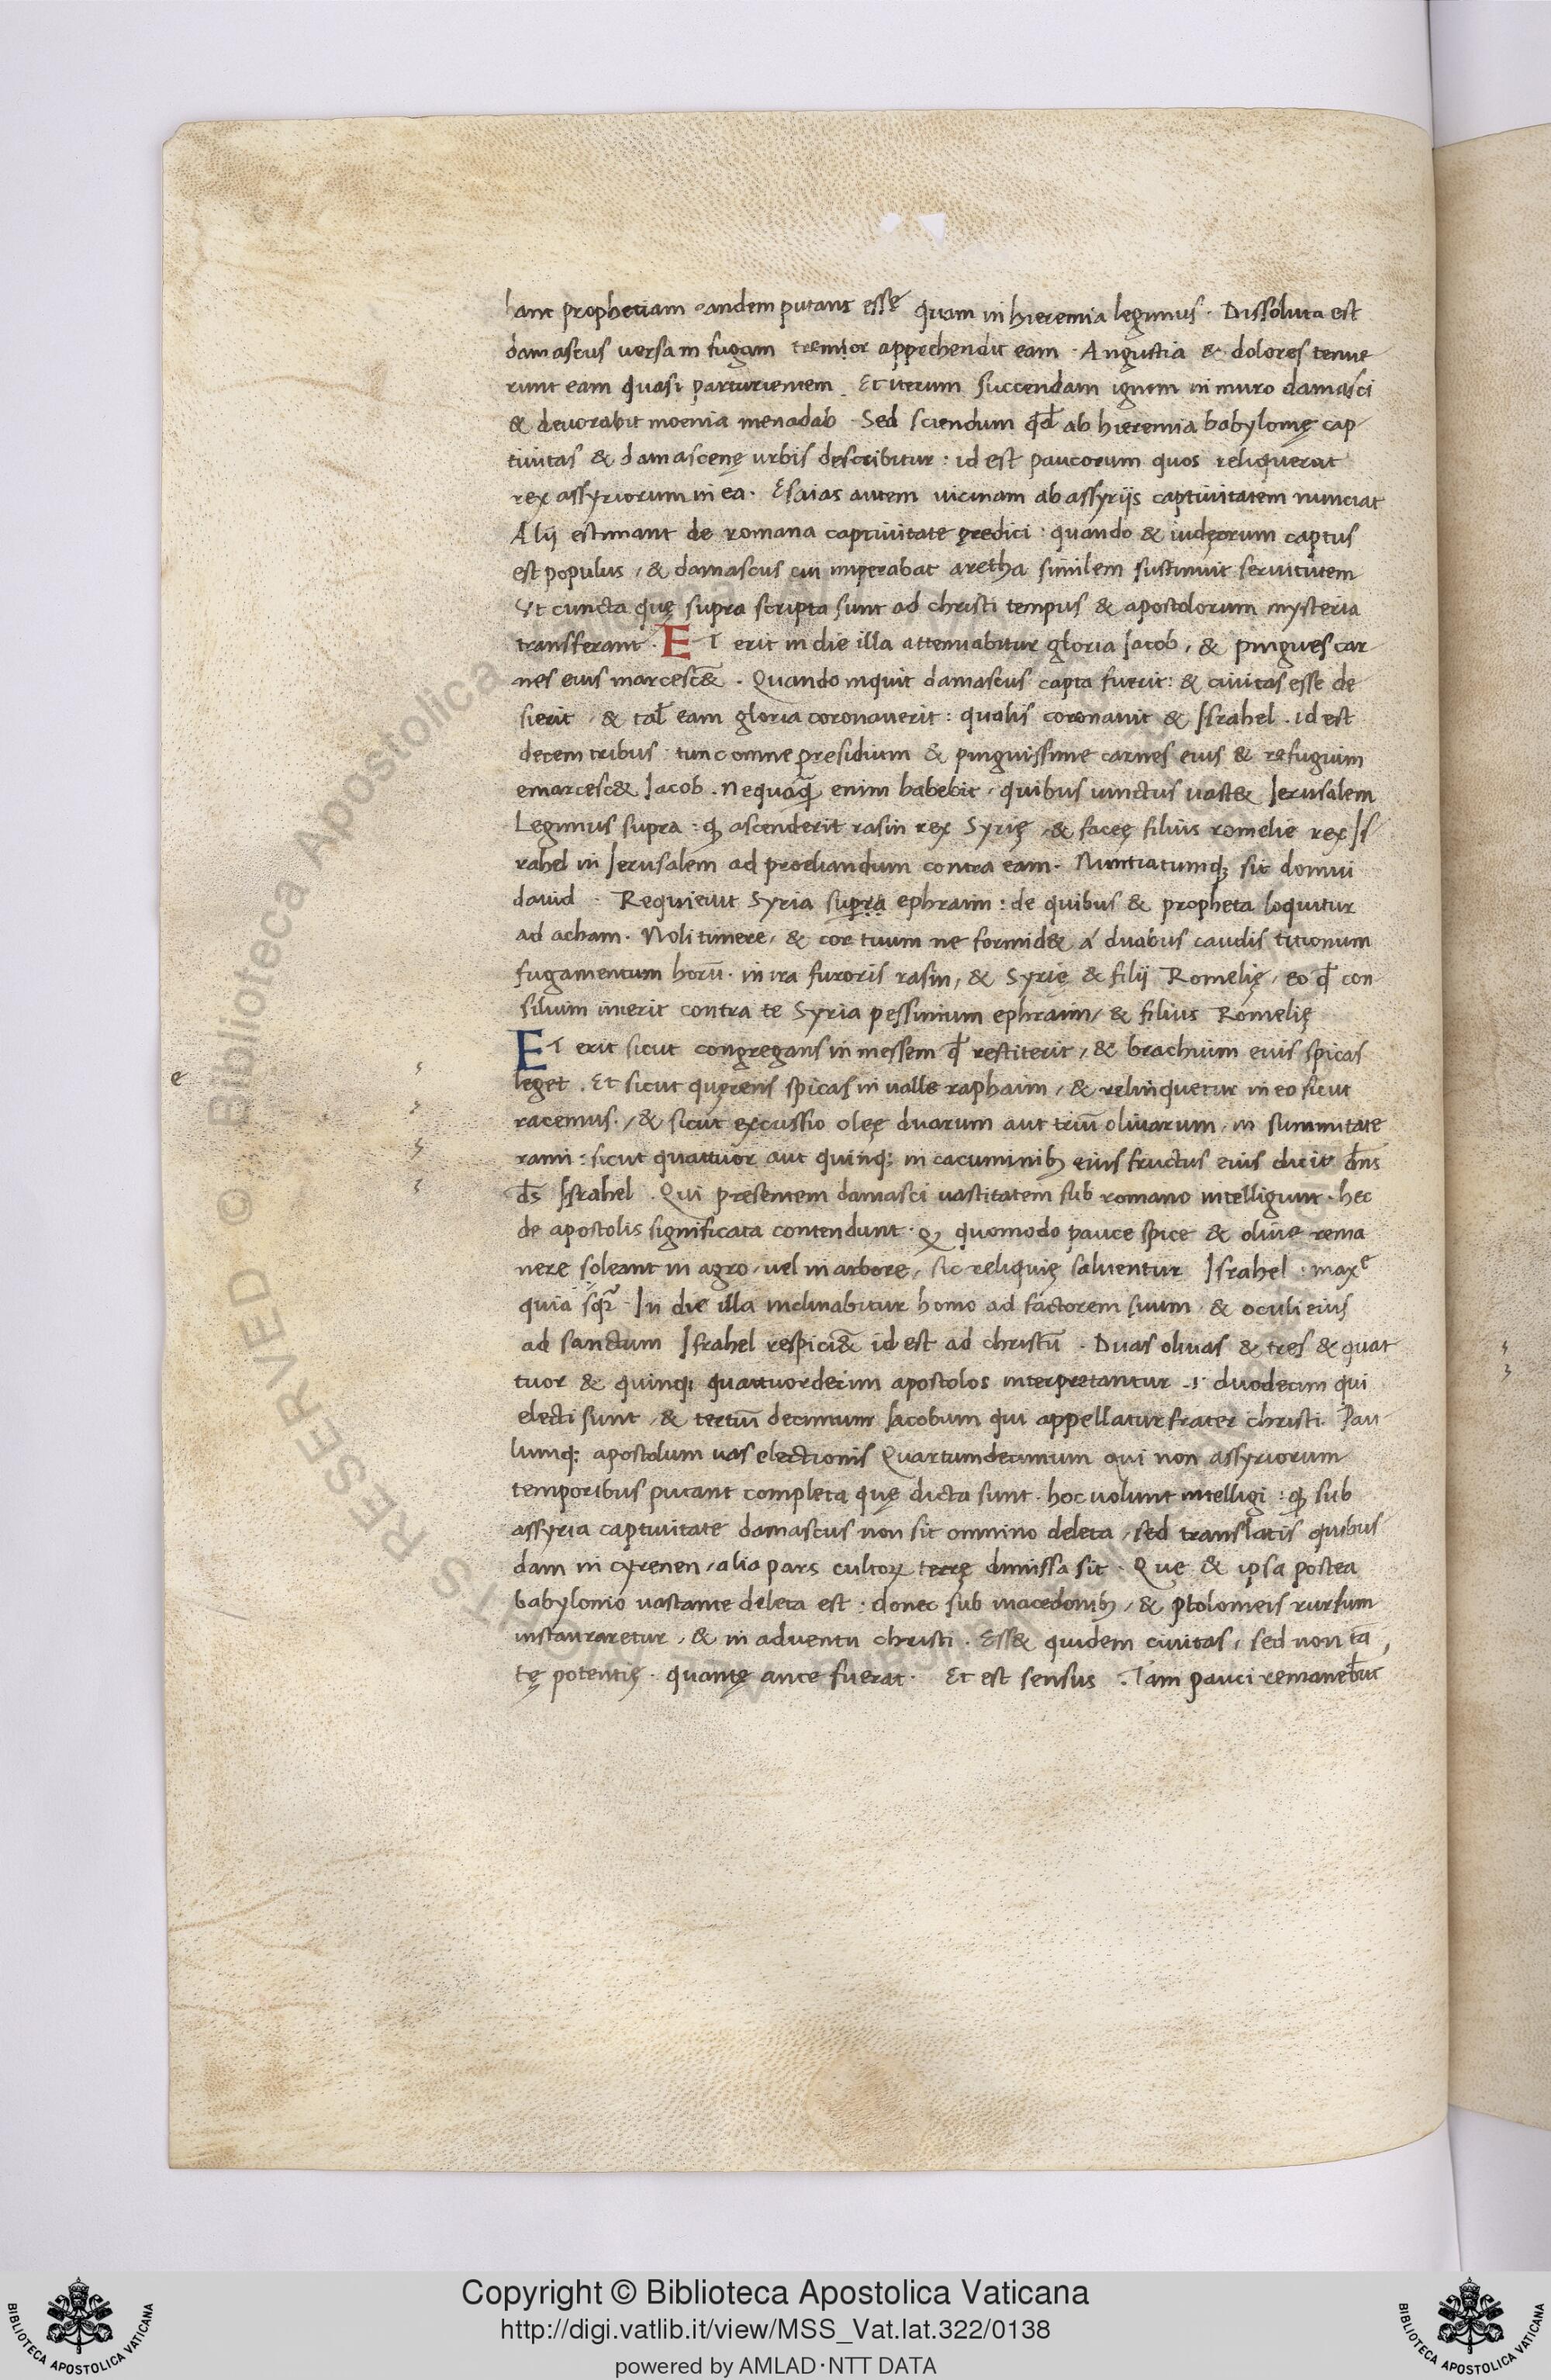 hanc prophetiam eandem putant essę quam in hieremia legimus . Dissoluta est
damascus uersa in fugam tremor apprehendit eam . Angustia & dolores tenue
runt eam quasi parturientem . Et iterum succendam ignem in muro damasci
& deuorabit moenia menadab . Sed sciendum qd̄ ab hieremia babylonię cap
tiuitas & damascenę urbis describitur : id est paucorum quos reliquerat
rex assyriorum in ea . Esaias autem uicinam ab assyrijs captiuitatem nunciat
Alij estimant de romana captiuitate predici : quando & iudęorum captus
est populus , & damascus cui imperabat aretha similem sustinuit seruitutem
Vt cuncta quę supra scripta sunt ad christi tempus & apostolorum mysteria
transferant . ET erit in die illa attenuabitur gloria Jacob , & pingues car
nes eius marcesc&̄ . Quando inquit damascus capta fuerit : & ciuitas esse de
sierit , & tal̄ eam gloria coronauerit : qualis coronauit & Israhel . id est
decem tribus tunc omne presidium & pinguissime carnes eius & refugium
emarcesc& Jacob . nequaq̄ enim habebit , quibus uinctus uast& Jerusalem
Legimus supra : ꝙ ascenderit rasin rex Syrię , & faceę filius romelie rex Is
rahel in Jerusalem ad proeliandum contra eam . Nuntiatumq; sit domui
dauid . Requieuit Syria supra ephraim : de quibus & propheta loquitur
ad acham . Noli timere , & cor tuum ne formid& a duabus caudis titionum
fugamentum horū . in ira furoris rasin , & Syrię & filij Romelię , eo qd̄ con
silium inierit contra te Syria pessimum ephraim , & filius Romelię
ET erit sicut congregans in messem qd̄ restiterit , & brachium eius spicas
leget . Et sicut quęrens spicas in ualle raphaim , & relinquetur in eo sicut
racemus . , & sicut excussio olęę duarum aut triū oliuarum . in summitate
rami : sicut quattuor aut quinq; in cacuminibꝫ eius fructus eius dicit dn̄s
ds̄ Israhel . Qui presentem damasci uastitatem sub romano intelligunt . hec
de apostolis significata contendunt . ꝙ quomodo pauce spice & oliue rema
nere soleant in agro , uel in arbore , sic reliquię saluentur Israhel : maxe
quia sqr̄ . In die illa inclinabitur homo ad factorem suum & oculi eius
ad sanctum Israhel respici&̄ id est ad christū . Duas oliuas & tres & quat
tuor & quinq; quattuordecim apostolos interpretantur .i. duodecim qui
electi sunt , & tertiū decimum Jacobum qui appellatur frater christi . Pau
lumq; apostolum uas electionis Quartumdecimum qui non assyriorum
temporibus putant completa quę dicta sunt . hoc uolunt intelligi : ꝙ sub
assyria captiuitate damascus non sit omnino deleta , sed translatis quibus
dam in cyrenen , alia pars cultorꝝ terrę dimissa sit . Que & ipsa postea
babylonio uastante deleta est : donec sub macedonibꝫ , & ptolomeis rursum
instauraretur , & in aduentu christi . Ess& quidem ciuitas , sed non tā
tę potentię . quantę ante fuerat . Et est sensus . Tam pauci remaneb̄ut
e
RESERVED © Biblioteca Apostolica Vaticana
Copyright © Biblioteca Apostolica Vaticana
http://digi.vatlib.it/view/MSS_Vat.lat.322/0138
powered by AMLAD·NTT DATA
BIBLIOTECA APOSTOLICA VATICANA
BIBLIOTECA APOSTOLICA VATICANA